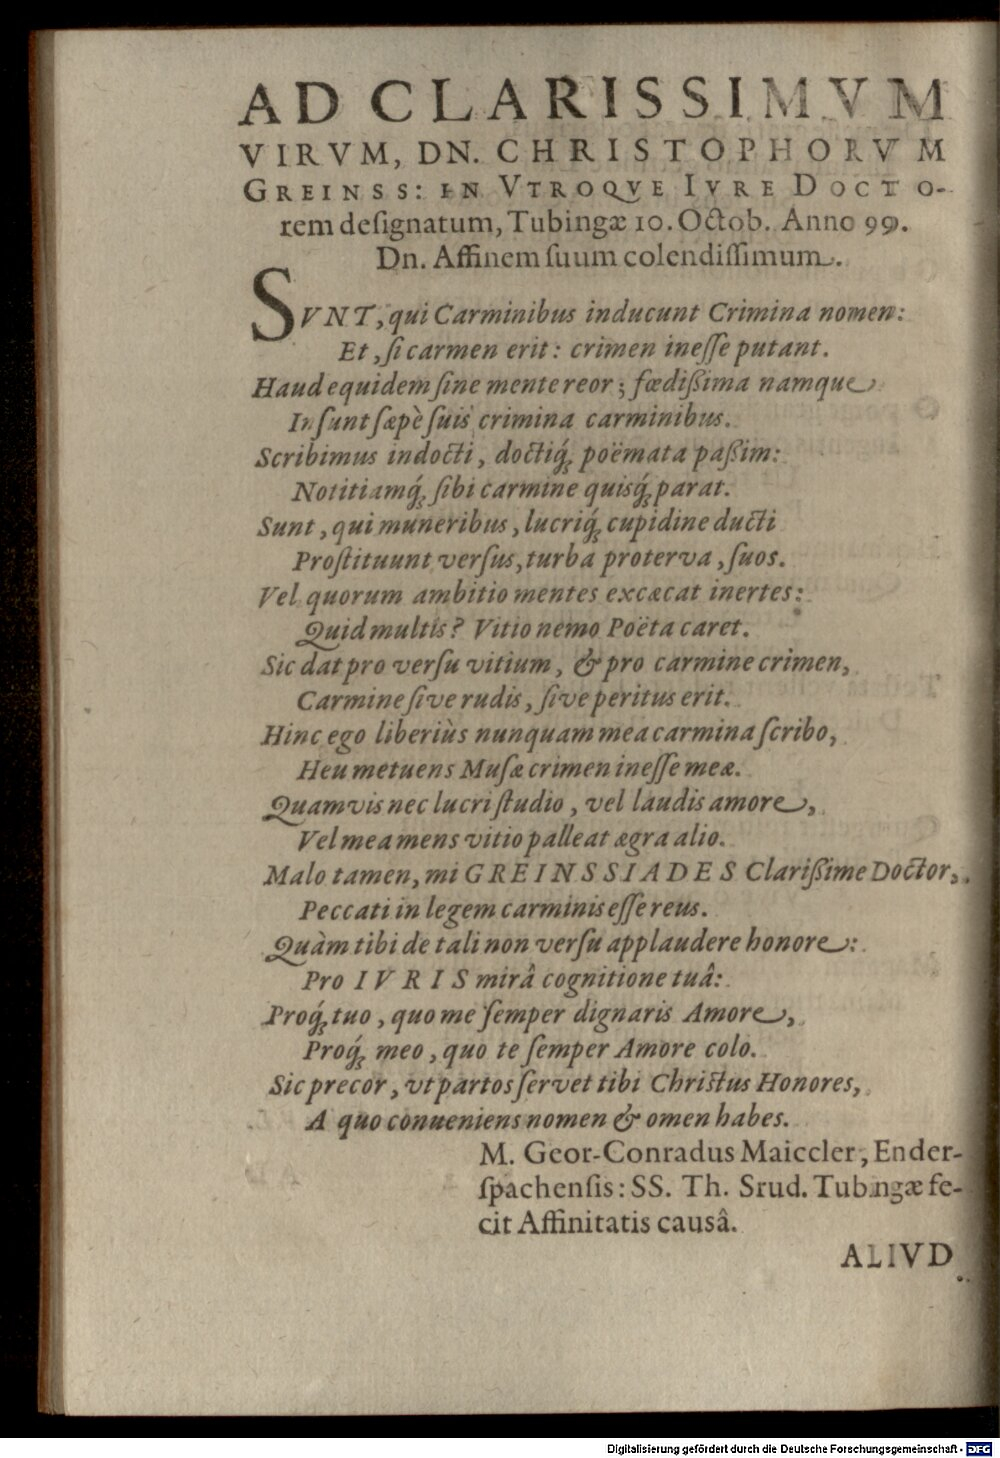 AD CLARISSIMVM
VIRVM, DN. CHRISTOPHORVM
GREINSS: IN VTROQVE IVRE DOCTO-
rem deſignatum, Tubingæ 10. Octob. Anno 99.
Dn. Affinem ſuum colendiſſimum.
SVNT, qui Carminibus inducunt Crimina nomen:
Et, ſi carmen erit: crimen ineſſe putant.
Haud equidem ſine mente reor; fœdißima namque
Inſunt ſæpè ſuis crimina carminibus.
Scribimus indocti, doctiq́; poëmata paßim:
Notitiamq́; ſibi carmine quisq́; parat.
Sunt, qui muneribus, lucriq́; cupidine ducti
Proſtituunt verſus, turba proterva, ſuos.
Vel quorum ambitio mentes excæcat inertes:
Quid multis? Vitio nemo Poëta caret.
Sic dat pro verſu vitium, & pro carmine crimen,
Carmine ſive rudis, ſive peritus erit.
Hinc ego liberiùs nunquam mea carmina ſcribo,
Heu metuens Muſæ crimen ineſſe meæ.
Quamvis nec lucri ſtudio, vel laudis amore,
Vel mea mens vitio palleat ægra alio.
Malo tamen, mi GREINSSIADES Clarißime Doctor,
Peccati in legem carminis eſſe reus.
Quàm tibi de tali non verſu applaudere honore:
Pro IVRIS mirâ cognitione tuâ:
Proq́; tuo, quo me ſemper dignaris Amore,
Proq́; meo, quo te ſemper Amore colo.
Sic precor, vt partos ſervet tibi Chriſtus Honores,
A quo conueniens nomen & omen habes.
M. Geor-Conradus Maiccler, Ender-
ſpachenſis: SS. Th. Srud. Tubingæ fe-
cit Affinitatis causâ.
ALIVD
Digitalisierung gefördert durch die Deutsche Forschungsgemeinschaft - DFG